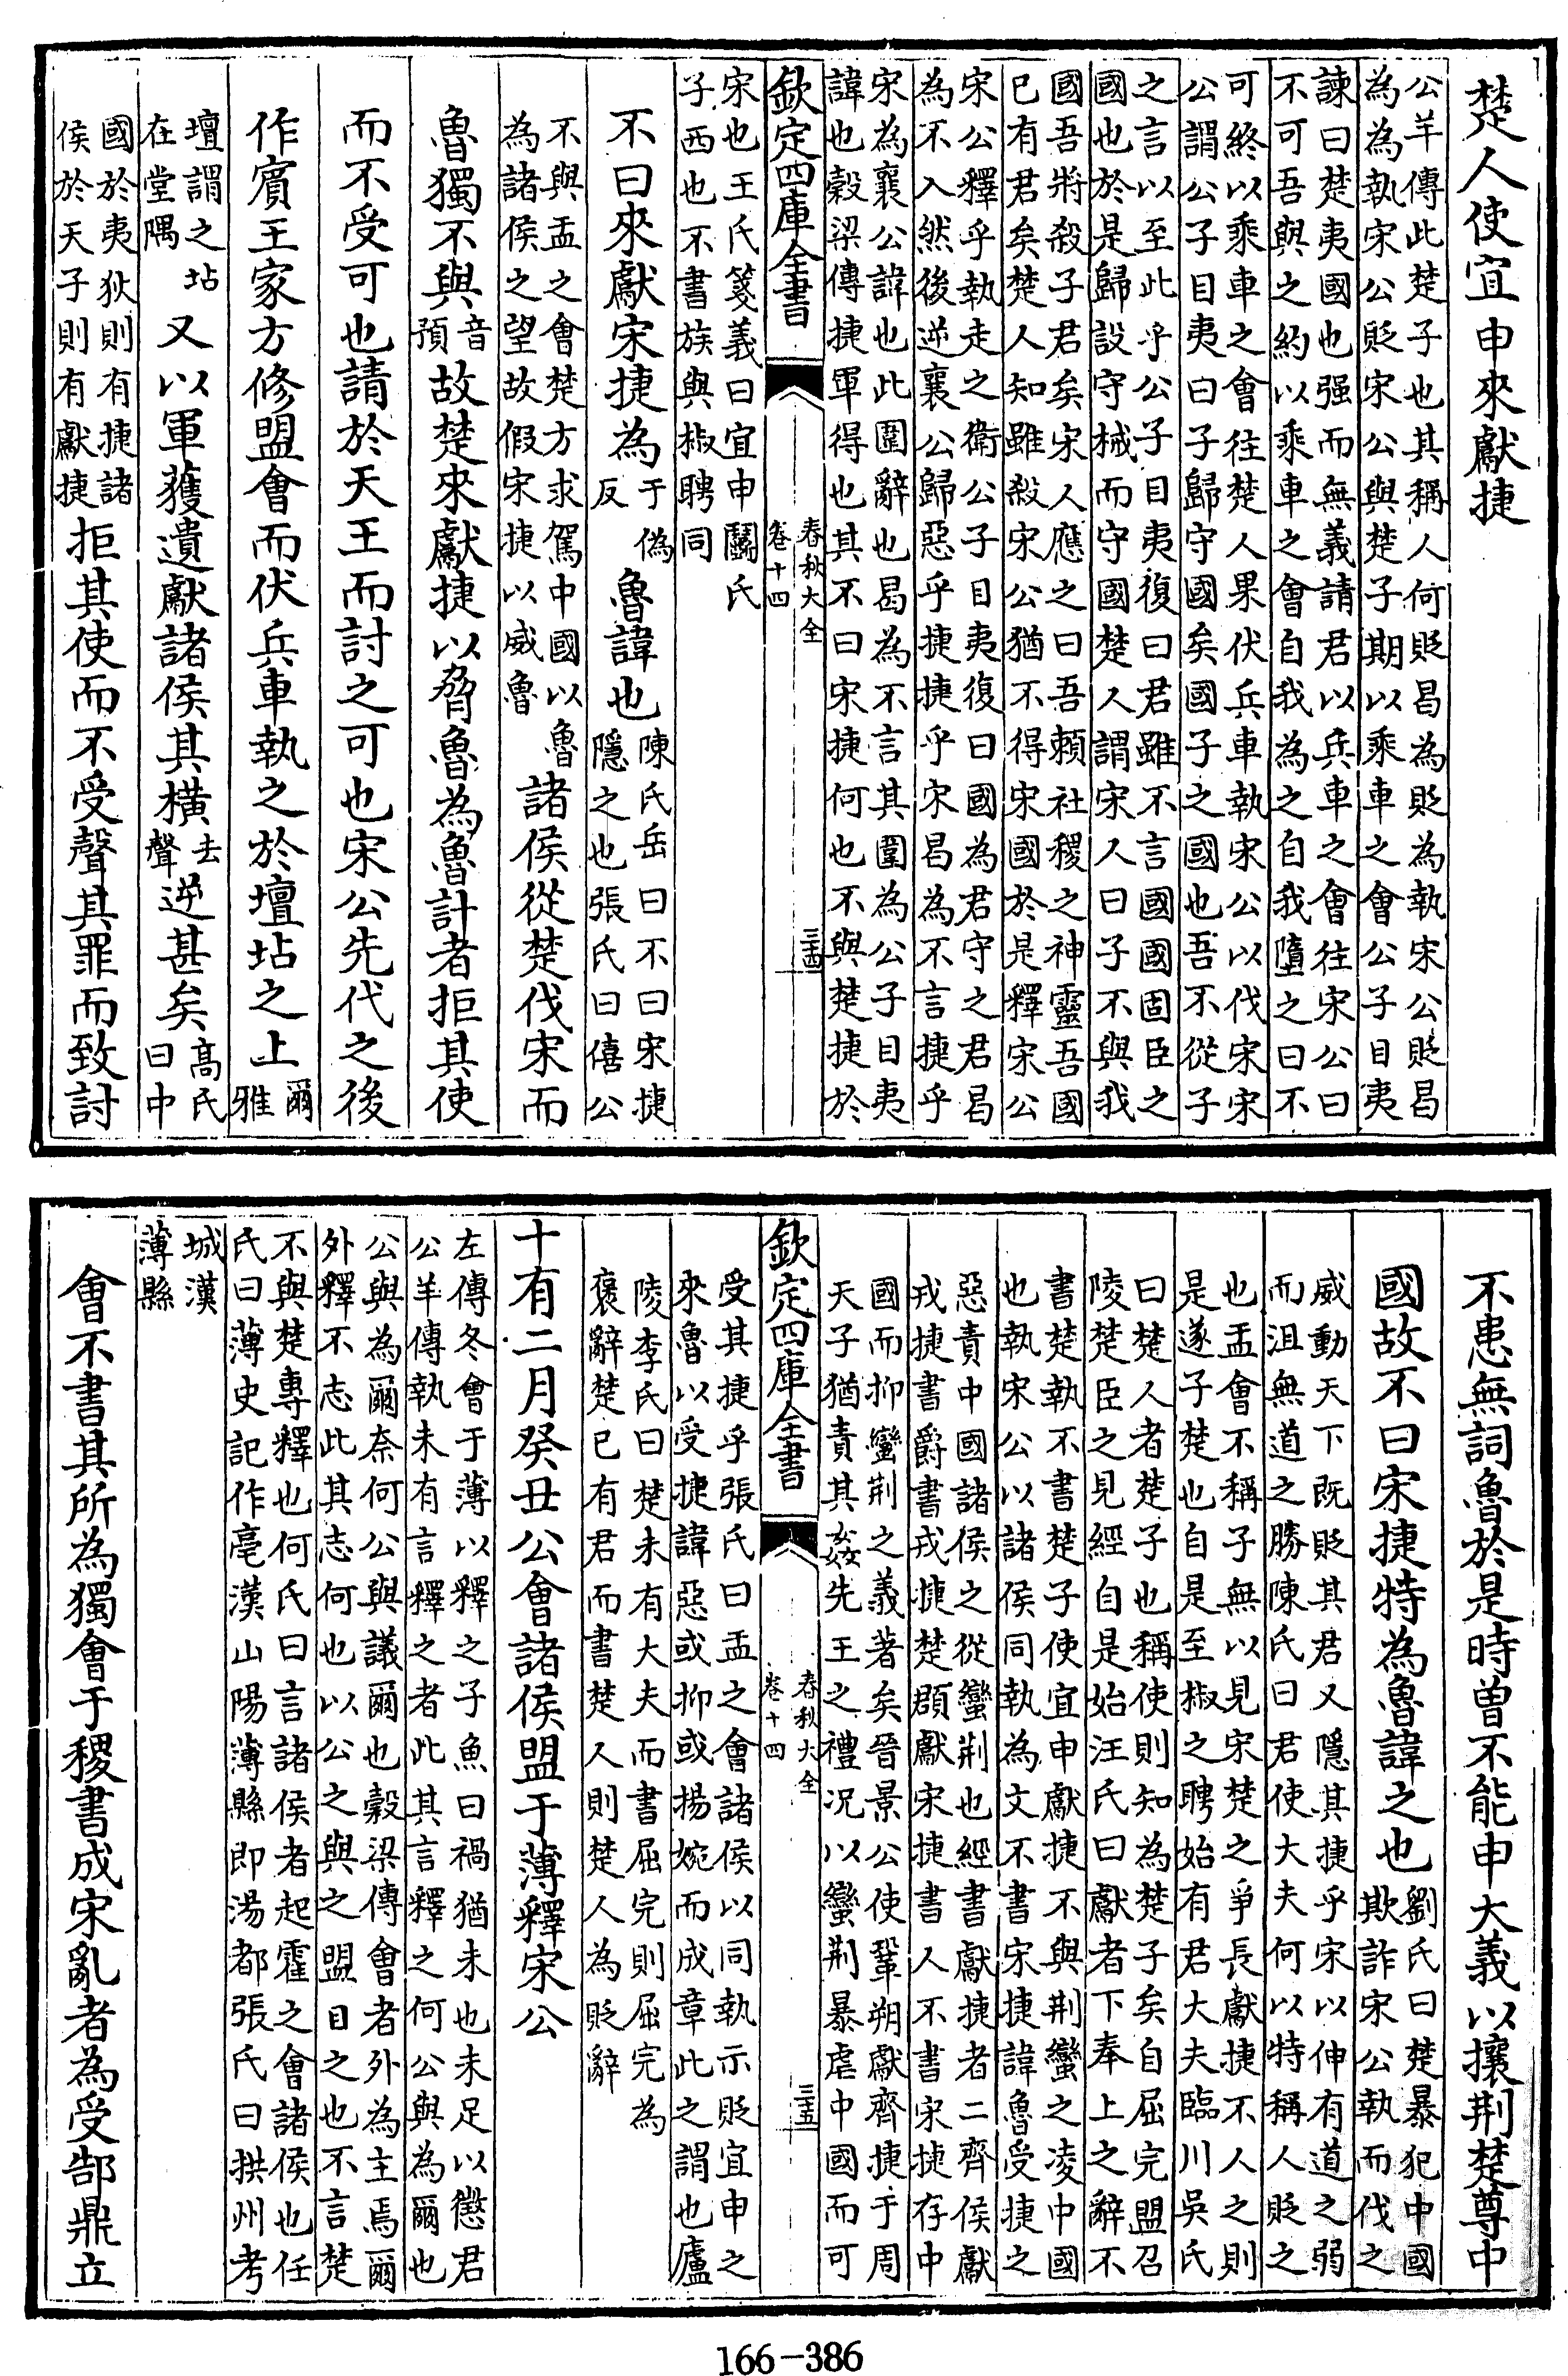 楚人使宜申來獻捷
公羊傳此楚子也其稱人何貶曷為貶為執宋公貶曷
為為執宋公貶宋公與楚子期以乘車之會公子目夷
諫曰楚夷國也强而無義請君以兵車之會往宋公曰
不可吾與之約以乘車之會自我為之自我墮之曰不
可終以乘車之會往楚人果伏兵車執宋公以伐宋宋
公謂公子目夷曰子歸守國矣國子之國也吾不從子
之言以至此乎公子目夷復曰君雖不言國國固臣之
國也於是歸設守械而守國楚人謂宋人曰子不與我
國吾將殺子君矣宋人應之曰吾賴社稷之神靈吾國
已有君矣楚人知雖殺宋公猶不得宋國於是釋宋公
宋公釋乎執走之衛公子目夷復曰國為君守之君曷
為不入然後逆襄公歸惡乎捷捷乎宋曷為不言捷乎
宋為襄公諱也此圍辭也曷為不言其圍為公子目夷
諱也穀梁傳捷軍得也其不曰宋捷何也不與楚捷於
欽定四庫全書
春秋大全
卷十四
三十四
宋也王氏箋義曰宜申鬭氏
子西也不書族與椒聘同
不曰來獻宋捷為于偽反魯諱也陳氏岳曰不曰宋捷隱之也張氏曰僖公
不與盂之會楚方求駕中國以魯為諸侯之望故假宋捷以威魯諸侯從楚伐宋而
魯獨不與音預故楚來獻捷以脅魯為魯計者拒其使
而不受可也請於天王而討之可也宋公先代之後
作賓王家方修盟會而伏兵車執之於壇坫之上爾雅
壇謂之坫在堂隅又以軍獲遺獻諸侯其橫去聲逆甚矣高氏曰中
國於夷狄則有捷諸侯於天子則有獻捷拒其使而不受聲其罪而致討
不患無詞魯於是時曽不能申大義以攘荆楚尊中
國故不曰宋捷特為魯諱之也劉氏曰楚暴犯中國欺詐宋公執而伐之
威動天下既貶其君又隱其捷乎宋以伸有道之弱
而沮無道之勝陳氏曰君使大夫何以特稱人貶之
也盂會不稱子無以見宋楚之爭長獻捷不人之則
是遂子楚也自是至椒之聘始有君大夫臨川吳氏
曰楚人者楚子也稱使則知為楚子矣自屈完盟召
陵楚臣之見經自是始汪氏曰獻者下奉上之辭不
書楚執不書楚子使宜申獻捷不與荆蠻之凌中國
也執宋公以諸侯同執為文不書宋捷諱魯受捷之
惡責中國諸侯之從蠻荆也經書獻捷者二齊侯獻
戎捷書爵書戎捷楚頵獻宋捷書人不書宋捷存中
國而抑蠻荆之義著矣晉景公使鞏朔獻齊捷于周
天子猶責其姦先王之禮况以蠻荆暴虐中國而可
欽定四庫全書
春秋大全
卷十四
三十五
受其捷乎張氏曰盂之會諸侯以同執示貶宜申之
來魯以受捷諱惡或抑或揚婉而成章此之謂也廬
陵李氏曰楚未有大夫而書屈完則屈完為
褒辭楚已有君而書楚人則楚人為貶辭
十有二月癸丑公會諸侯盟于薄釋宋公
左傳冬會于薄以釋之子魚曰禍猶未也未足以懲君
公羊傳執未有言釋之者此其言釋之何公與為爾也
公與為爾奈何公與議爾也穀梁傳會者外為主焉爾
外釋不志此其志何也以公之與之盟目之也不言楚
不與楚專釋也何氏曰言諸侯者起霍之會諸侯也任
氏曰薄史記作亳漢山陽薄縣即湯都張氏曰拱州考
城漢
薄縣
會不書其所為獨會于稷書成宋亂者為受郜鼎立
166-386